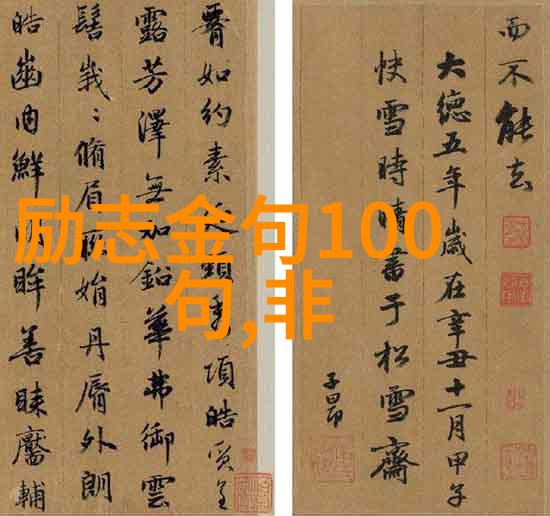 如約素延頸秀項皓質呈
露芳澤無加鉛華弗御雲
髻峩〻脩眉聯娟丹脣外朗
皓齒内鮮明眸善睞靨輔
而不能去
大德五年歲在辛丑十一月甲子
快雪時晴書于松雪齋
子昂
励志金句100
句,非